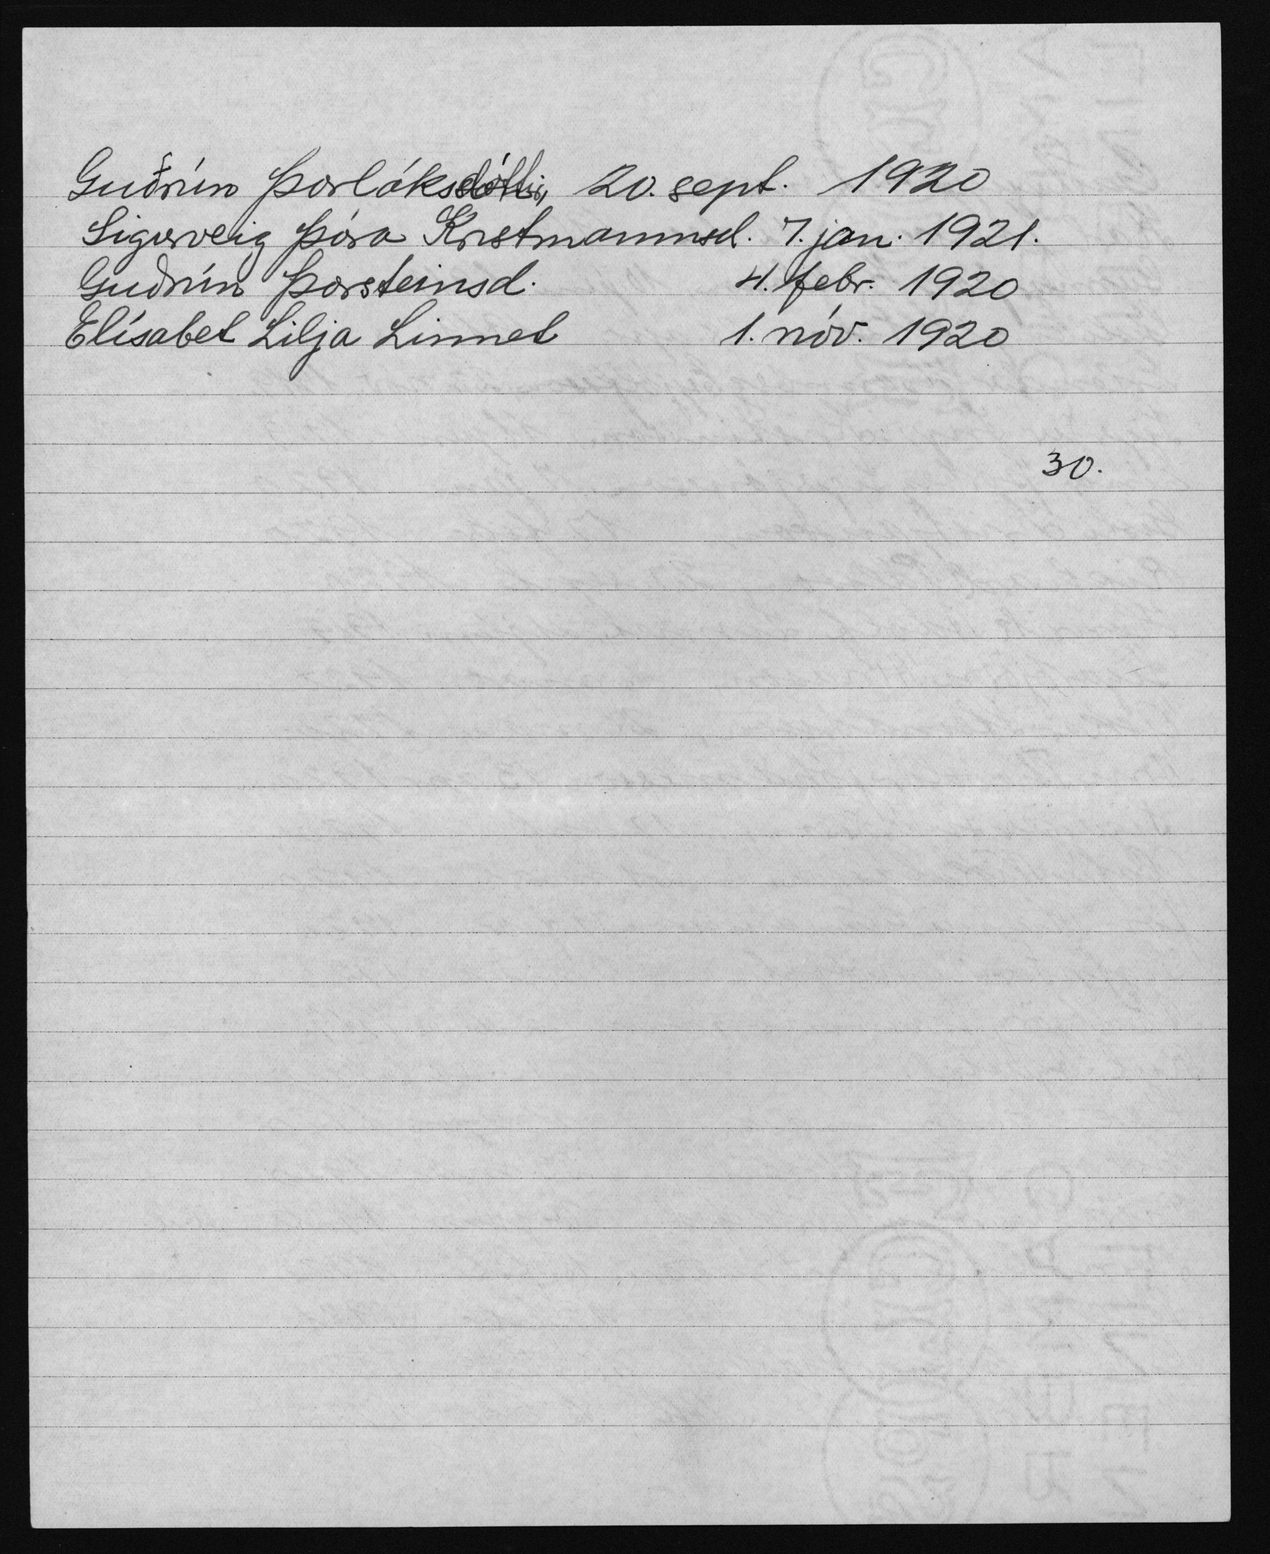 Guðrún Þorláksdóttir, 20. sept. 1920
Sigurveig Þóra Kristmannsd. 7. jan. 1921.
Guðrún Þorsteinsd. 4. febr. 1920
Elísabet Lilja Linnet 1. nóv. 1920
30.